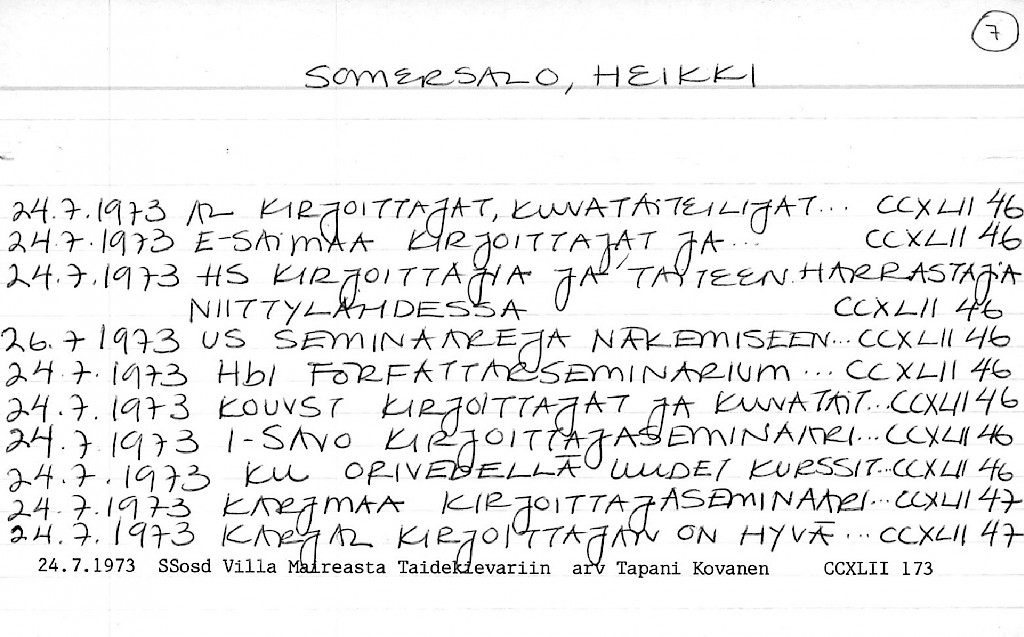 7
SOMERSALO, HEIKKI
24.7.1973 AL KIRJOITTAJAT, KUVATAITEILIJAT... CCXLII 46
24.7.1973 E-SAIMAA KIRJOITTAJAT JA... CCXLII 46
24.7.1973 HS KIRJOITTAJIA JA TAITEEN HARRASTAJIA
NIITTYLAHDESSA CCXLII 46
26.7 1973 US SEMINAAREJA NÄKEMISEEN... CCXLII 46
24.7.1973 Hbl FÖRFATTARSEMINARIUM... CCXLII 46
24.7.1973 KOUVST KIRJOITTAJAT JA KUVATAIT... CCXLII 46
24.7.1973 I-SAVO KIRJOITTAJASEMINAARI... CCXLII 46
24.7.1973 KU ORIVEDELLÄ UUDET KURSSIT... CCXLII 46
24.7.1973 KARJMAA KIRJOITTAJASEMINAARI... CCXLII 47
24.7.1973 KARJAL KIRJOITTAJAN ON HYVÄ... CCXLII 47
24.7.1973 SSosd Villa Maireasta Taidekievariin arv Tapani Kovanen CCXLII 173